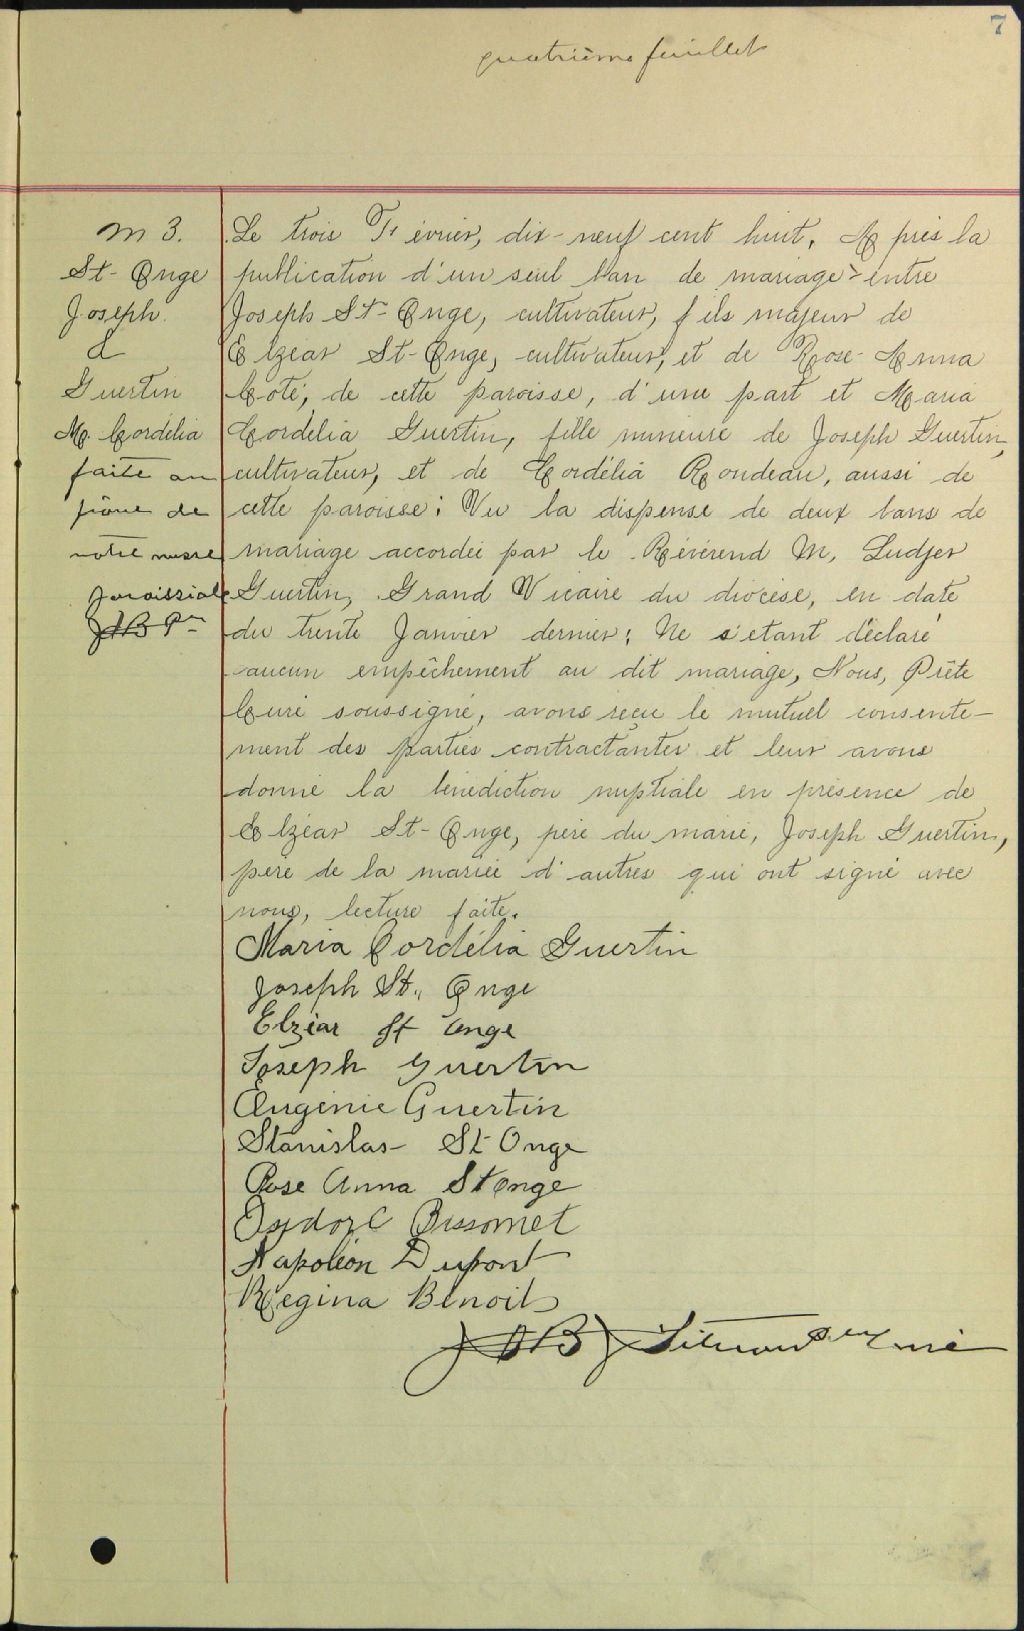 7
quatrième feuillet
M 3.
St-Onge
Joseph.
&
Guertin
M. Cordélia
faite au
prône de
notre messe
paroissiale
JAB Ptre
Le trois Février, dix-neuf cent huit, Après la
publication d'un seul ban de mariage entre
Joseph St-Onge, cultivateur, fils majeur de
Elzéar St-Onge, cultivateur, et de Rose-Anna
Coté, de cette paroisse, d'une part et Maria
Cordélia Guertin, fille mineure de Joseph Guertin,
cultivateur, et de Cordélia Rondeau, aussi de
cette paroisse; Vu la dispense de deux bans de
mariage accordée par le Révérend M. Ludger
Guertin, Grand Vicaire du diocèse, en date
du trente Janvier dernier; Ne s'étant déclaré
aucun empêchement au dit mariage, Nous, Prête
Curé soussigné, avons reçu le mutuel consente-
ment des parties contractantes et leur avons
donné la bénédiction nuptiale en présence de
Elzéar St-Onge, père du marié, Joseph Guertin,
père de la mariée d'autres qui ont signé avec
nous, lecture faite.
Maria Cordélia Guertin
Joseph St. Onge
Elzéar St Onge
Joseph Guertin
Eugénie Guertin
Stanislas St-Onge
Rose Anna St Onge
Napoléon Dupont
Regina Benoit
curé